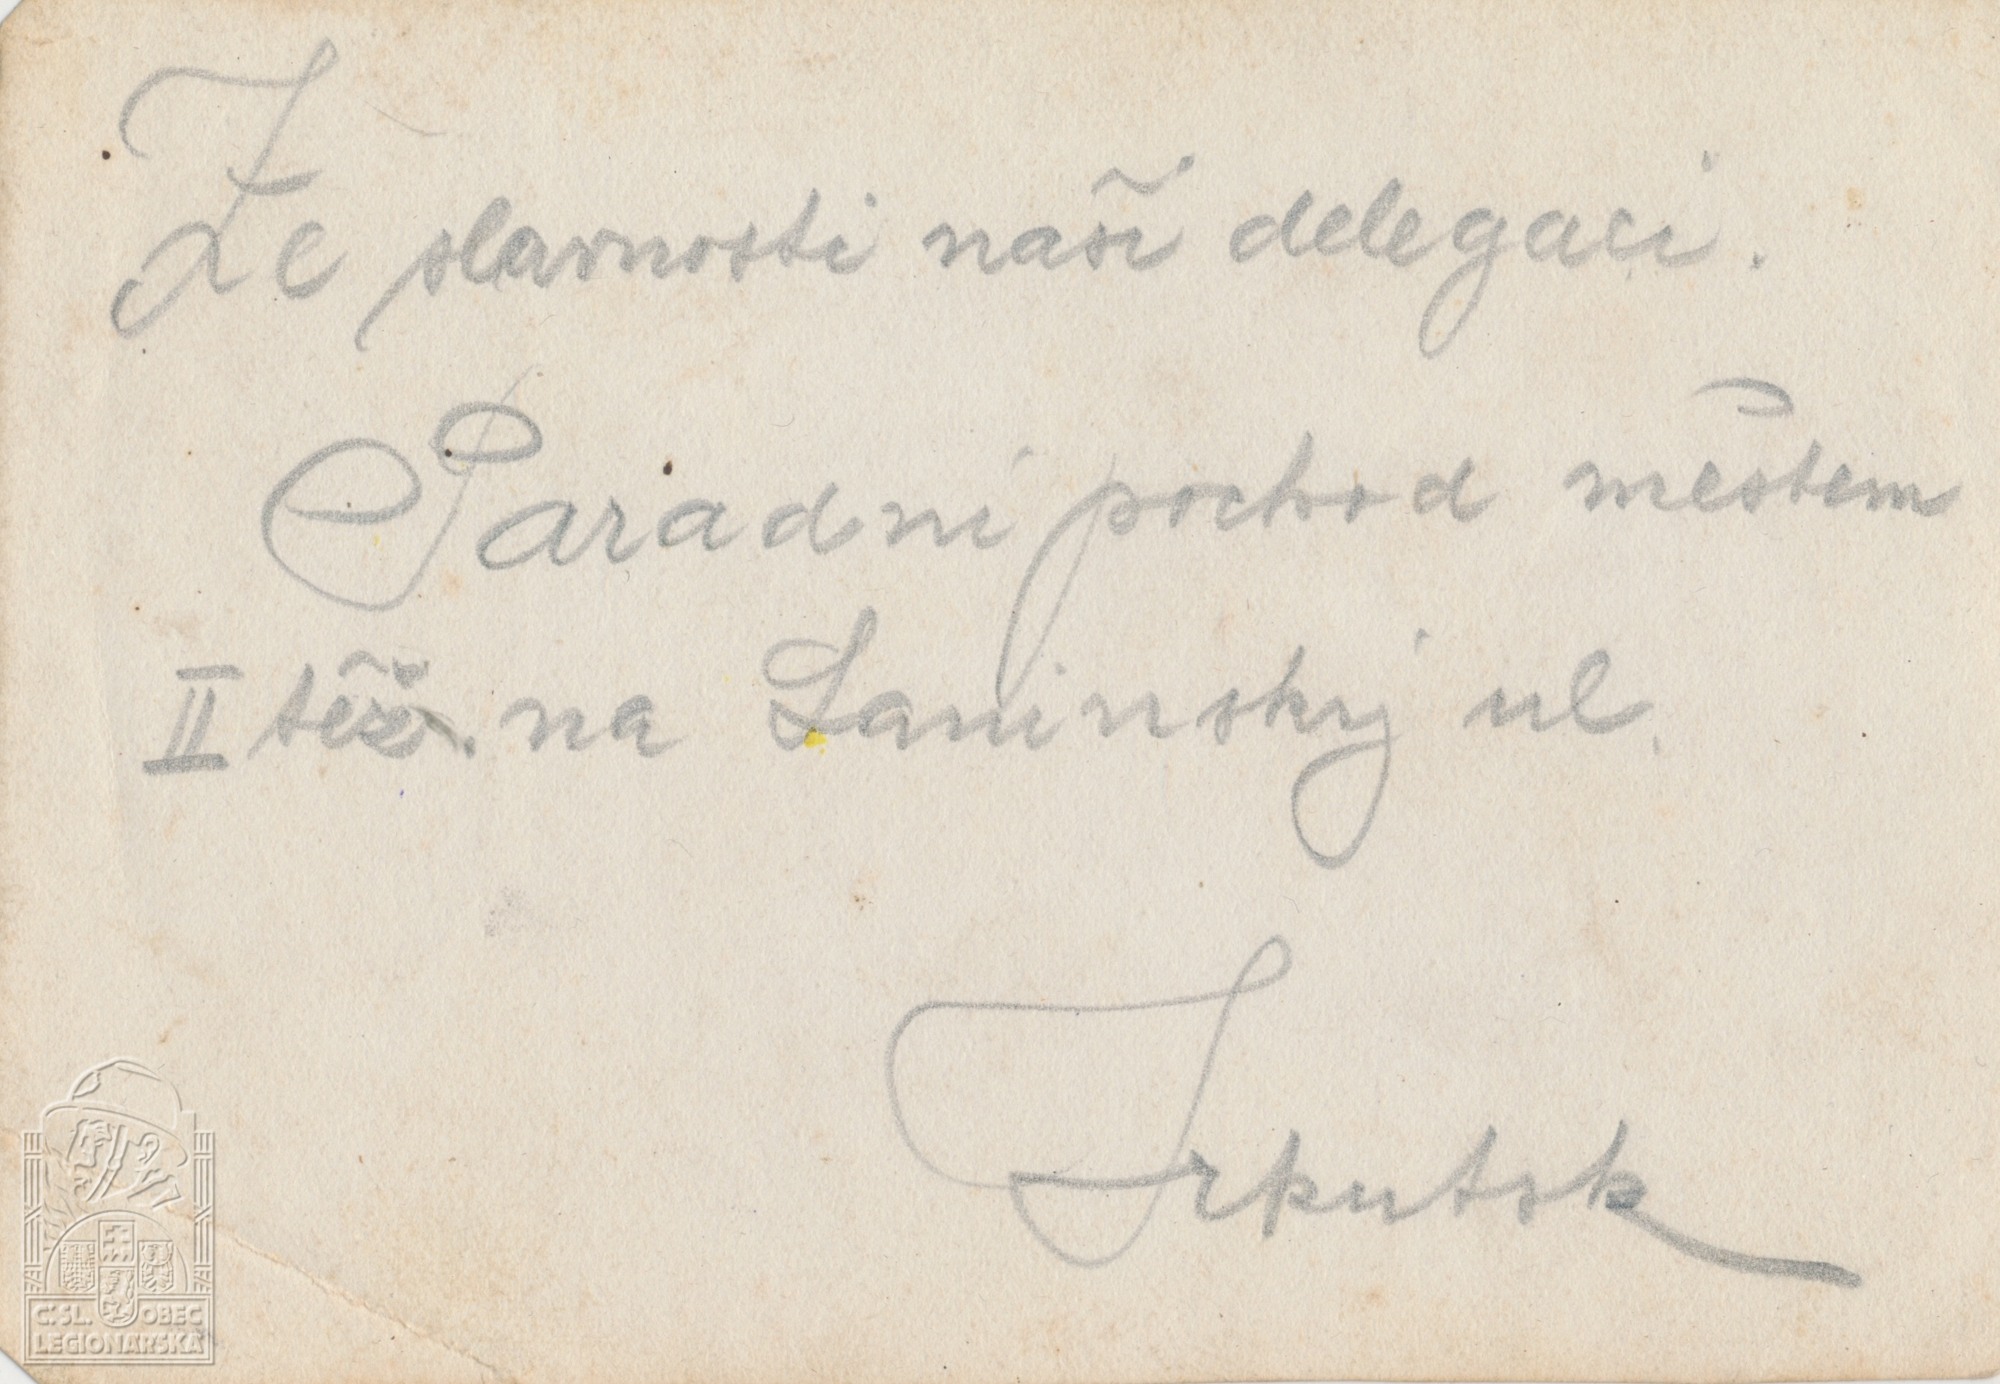 Ze slavnosti naší delegaci.
Paradni pochod městem
II těž. na Laninskyj ul.
Irkutsk
Č.SL. OBEC
LEGIONÁŘSKÁ